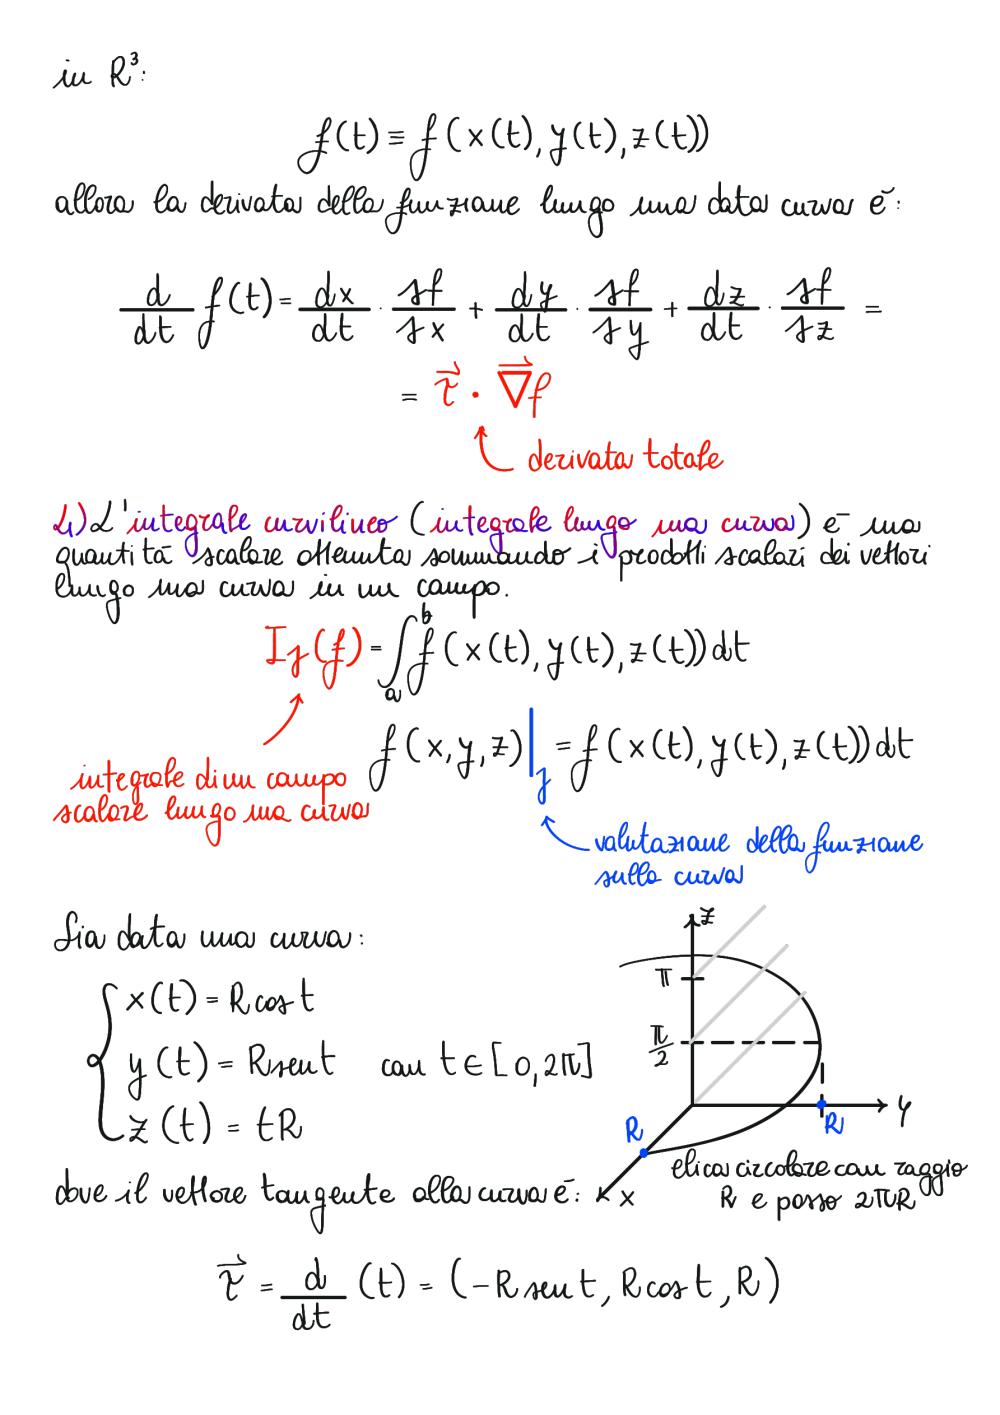 in R³:
f(t) ≡ f(x(t), y(t), z(t))
allora la derivata della funzione lungo una data curva è:
d/dt f(t) = dx/dt · sf/sx + dy/dt · sf/sy + dz/dt · sf/sz =
= τ⃗ · ∇⃗f
derivata totale
4) L'integrale curvilineo (integrale lungo una curva) è una
quantità scalare ottenuta sommando i prodotti scalari dei vettori
lungo una curva in un campo.
I_γ(f) = ∫_a^b f(x(t), y(t), z(t)) dt
f(x, y, z)|_γ = f(x(t), y(t), z(t)) dt
integrale di un campo
scalare lungo una curva
valutazione della funzione
sulla curva
Sia data una curva:
x(t) = R cos t
y(t) = R sen t con t ∈ [0, 2π]
z(t) = tR
z
π
π/2
R
R
y
x
elica circolare con raggio
R e passo 2πR
dove il vettore tangente alla curva è:
τ⃗ = d/dt (t) = (-R sen t, R cos t, R)